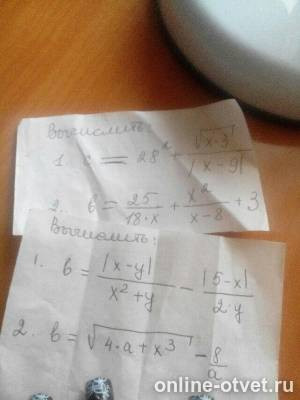 Вычислить:
1. c = 28² + √(x·3) / |x-9|
2. b = 25 / (18·x) + x² / (x-8) + 3
Вычислить:
1. b = |x-y| / (x²+y) - |5-x| / (2·y)
2. b = √(4·a+x³) - 8/a
online-otvet.ru